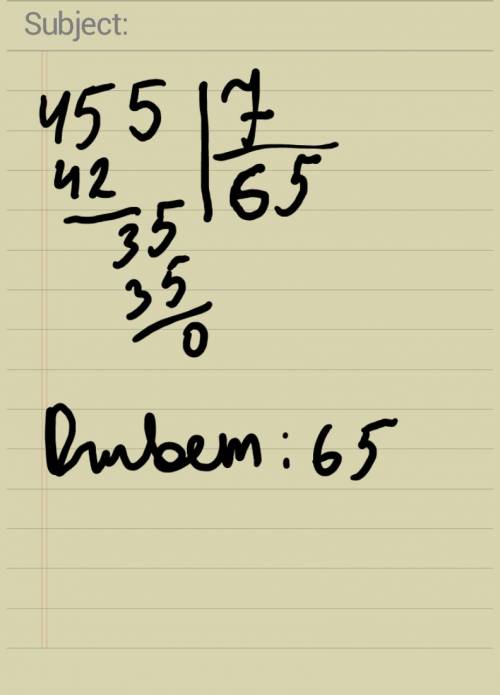 Subject:
455 7
42 65
35
35
0
Ответ: 65